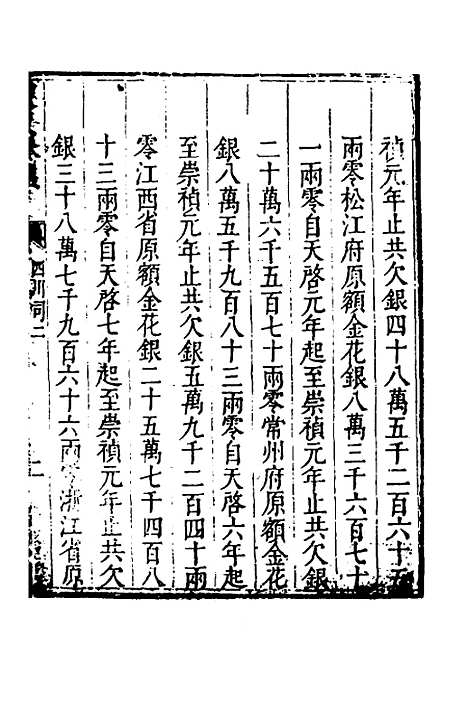 禎元年止共欠銀四十八萬五千二百六十五
兩零松江府原額金花銀八萬三千六百七十
一兩零自天啓元年起至崇禎元年止共欠銀
二十萬六千五百七十兩零常州府原額金花
銀八萬五千九百八十三兩零自天啓六年起
至崇禎元年止共欠銀五萬九千二百四十兩
零江西省原額金花銀二十五萬七千四百八
十三兩零自天啓七年起至崇禎元年止共欠
銀三十八萬七千九百六十六兩零浙江省原